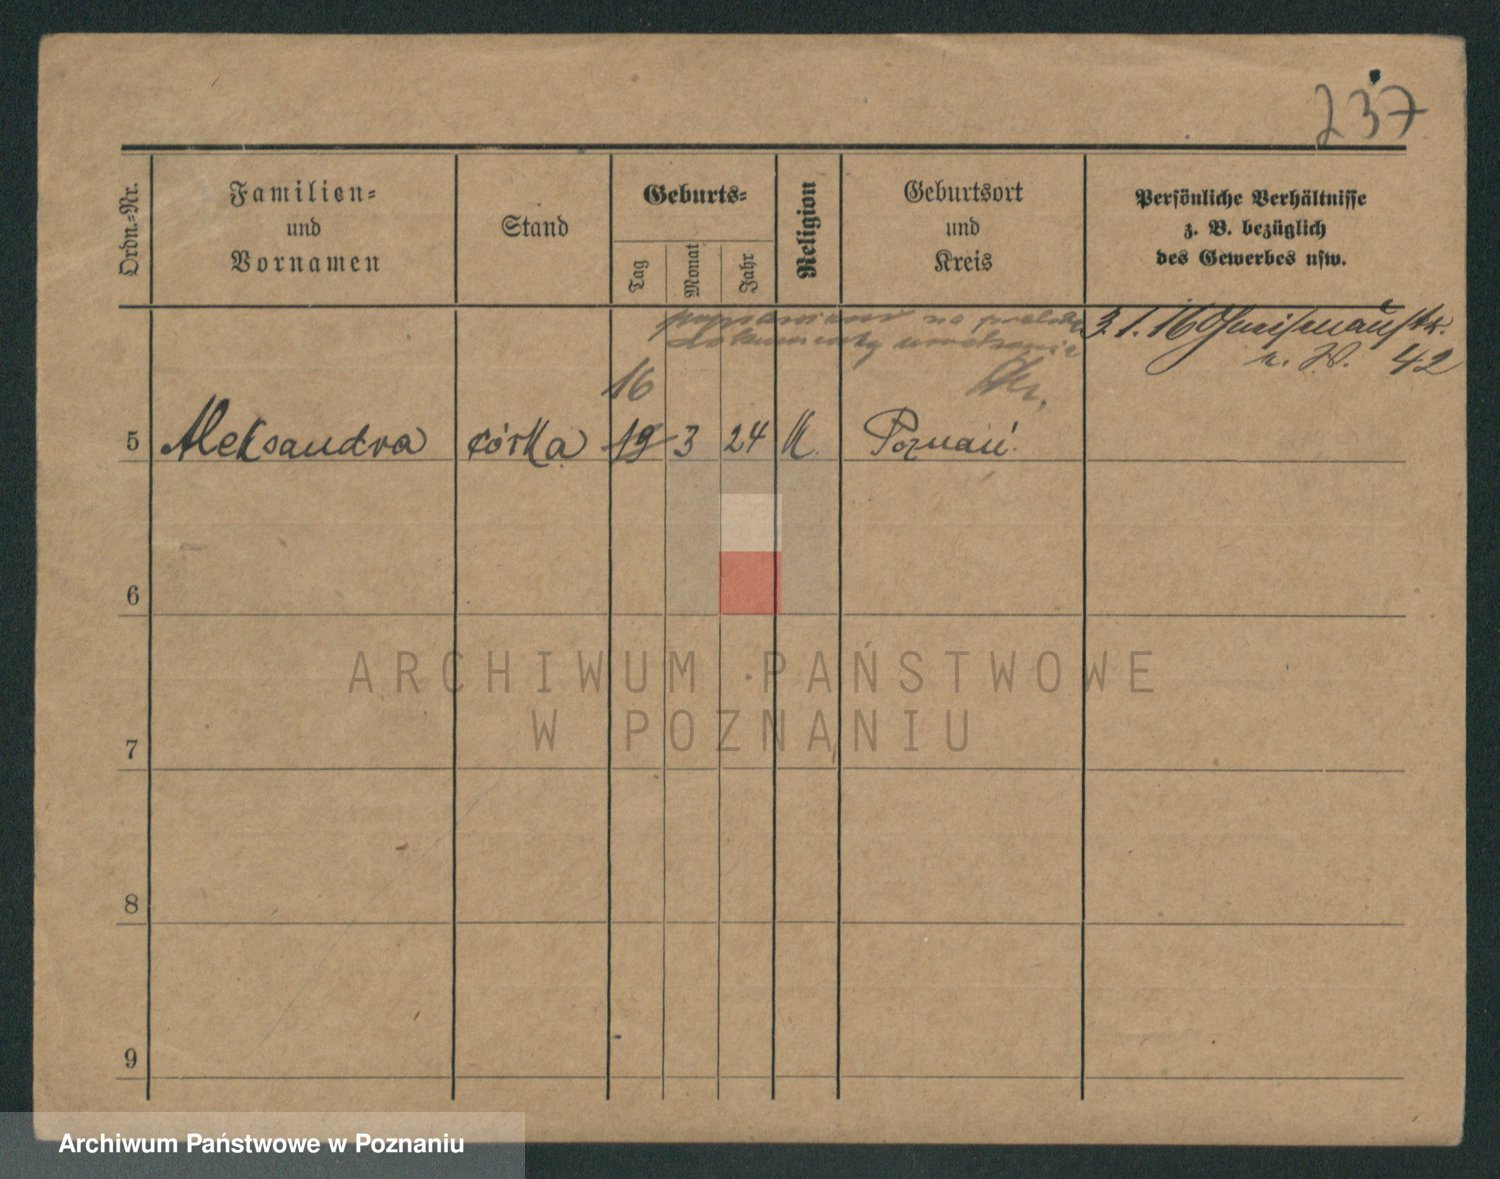 237
Ordn.-Nr.
Familien-
und
Vornamen
Stand
Geburts-
Tag
Monat
Jahr
Religion
Geburtsort
und
Kreis
Persönliche Verhältnisse
z. B. bezüglich
des Gewerbes usw.
na
dokumenty
3.1.16
42
16
5 Aleksandra córka 19 3 24 K. Poznań
6
7
8
9
ARCHIWUM PAŃSTWOWE
W POZNANIU
Archiwum Państwowe w Poznaniu